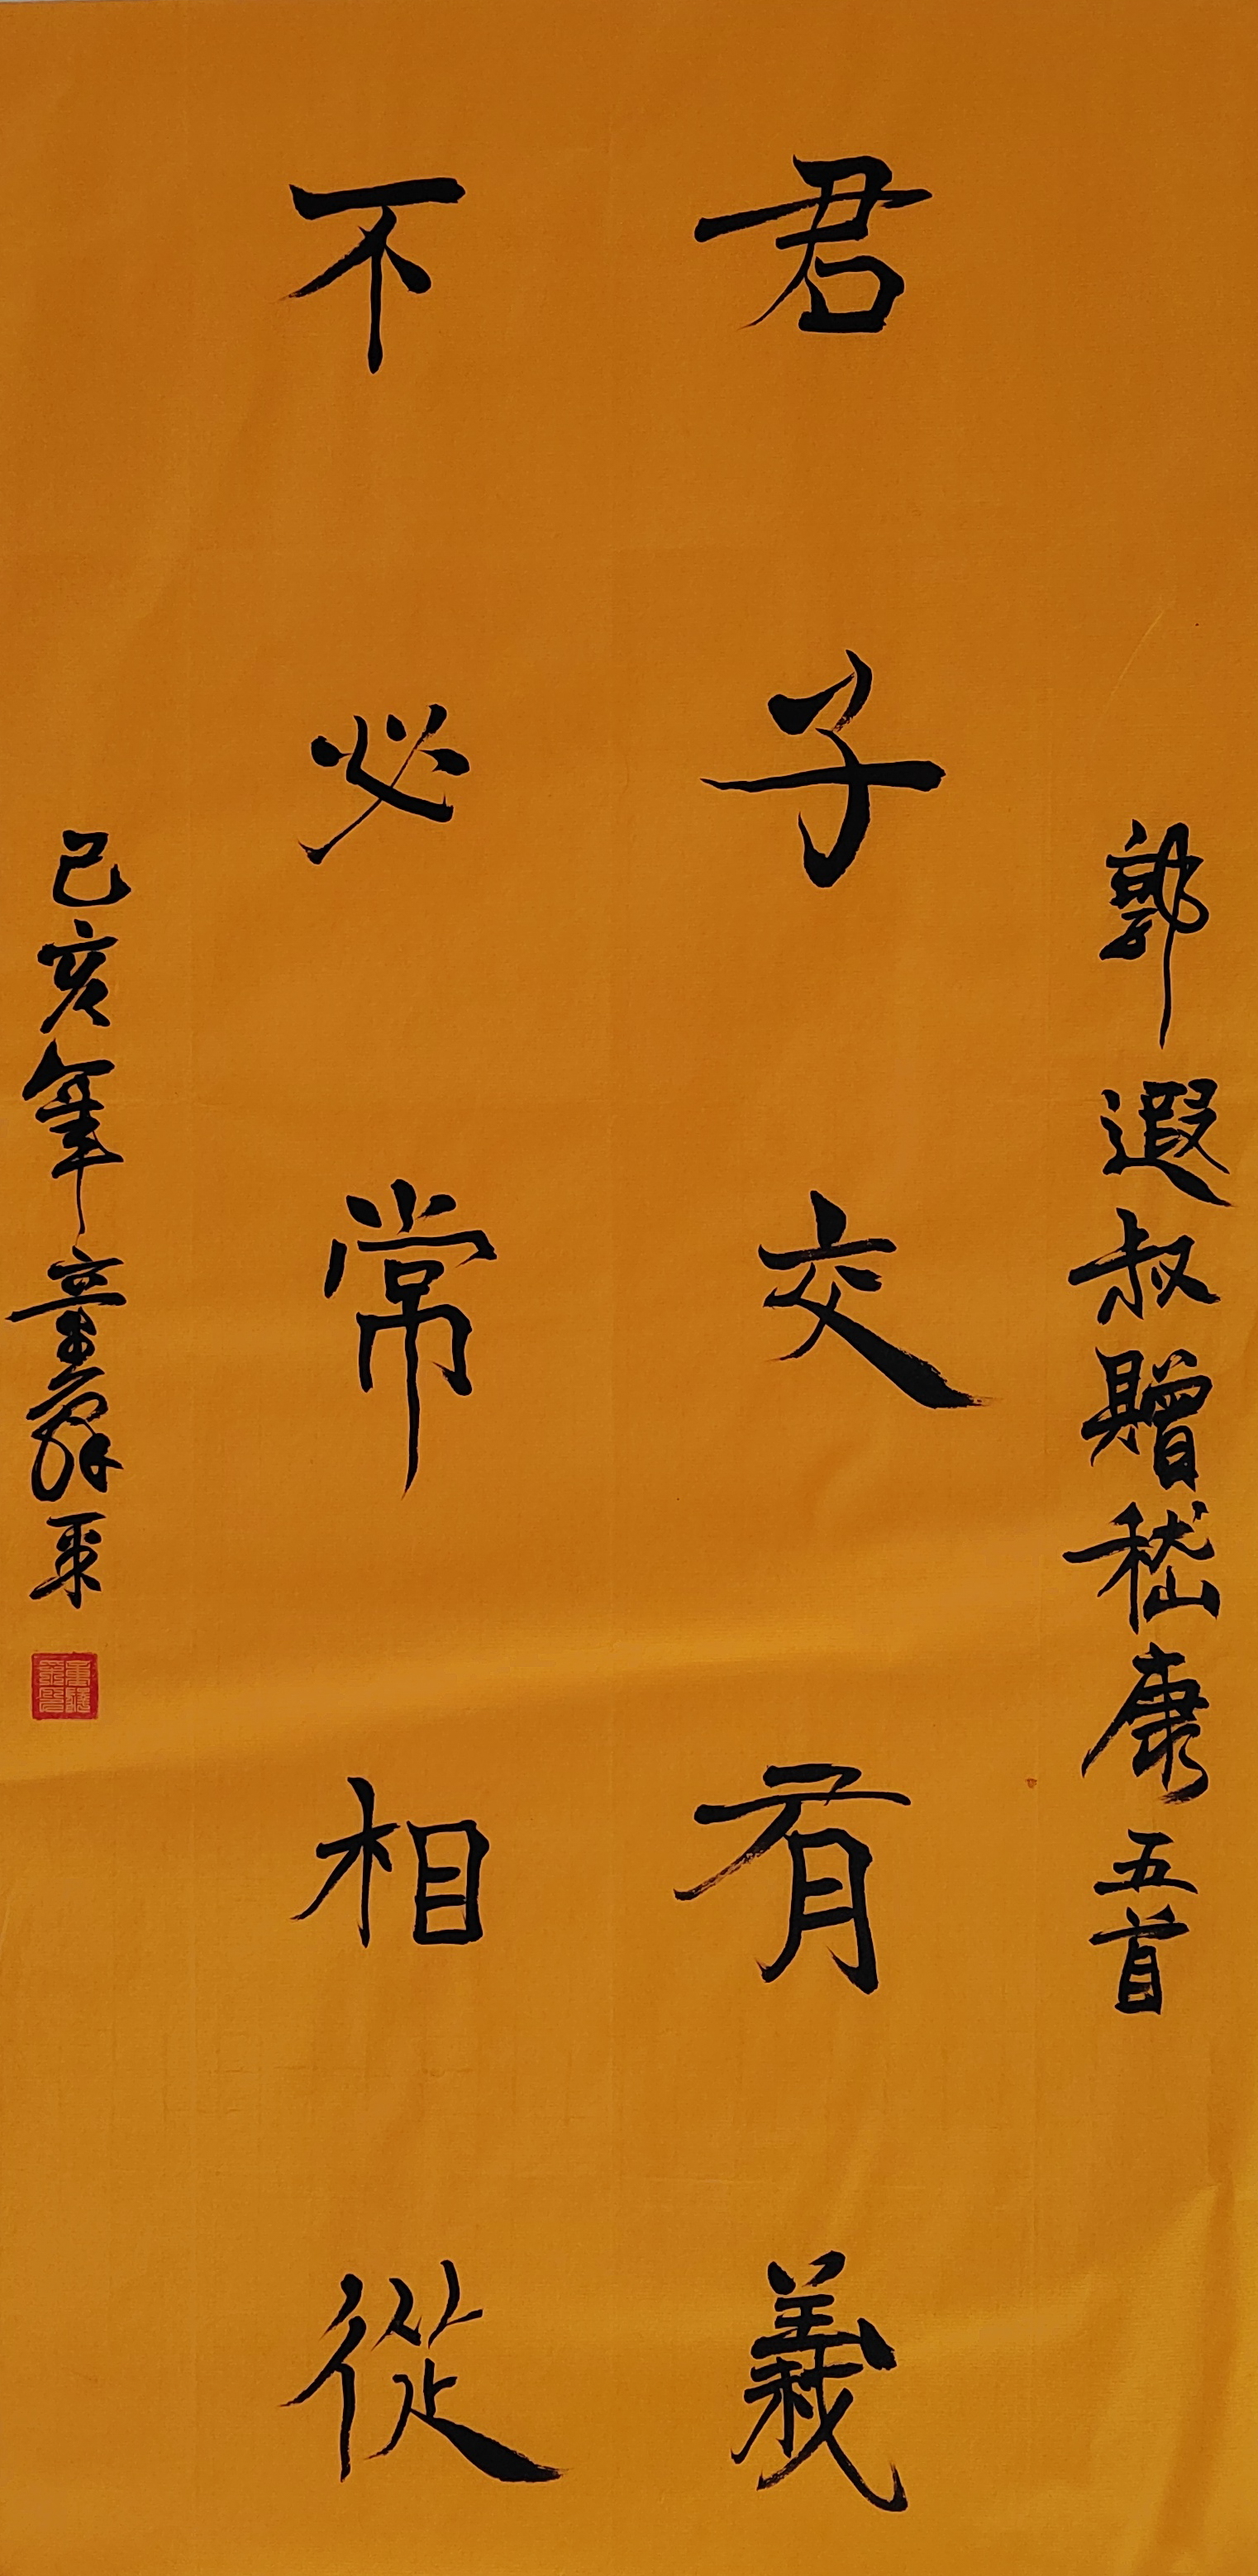 郭遐叔贈嵇康五首
君子交有義
不必常相從
己亥年